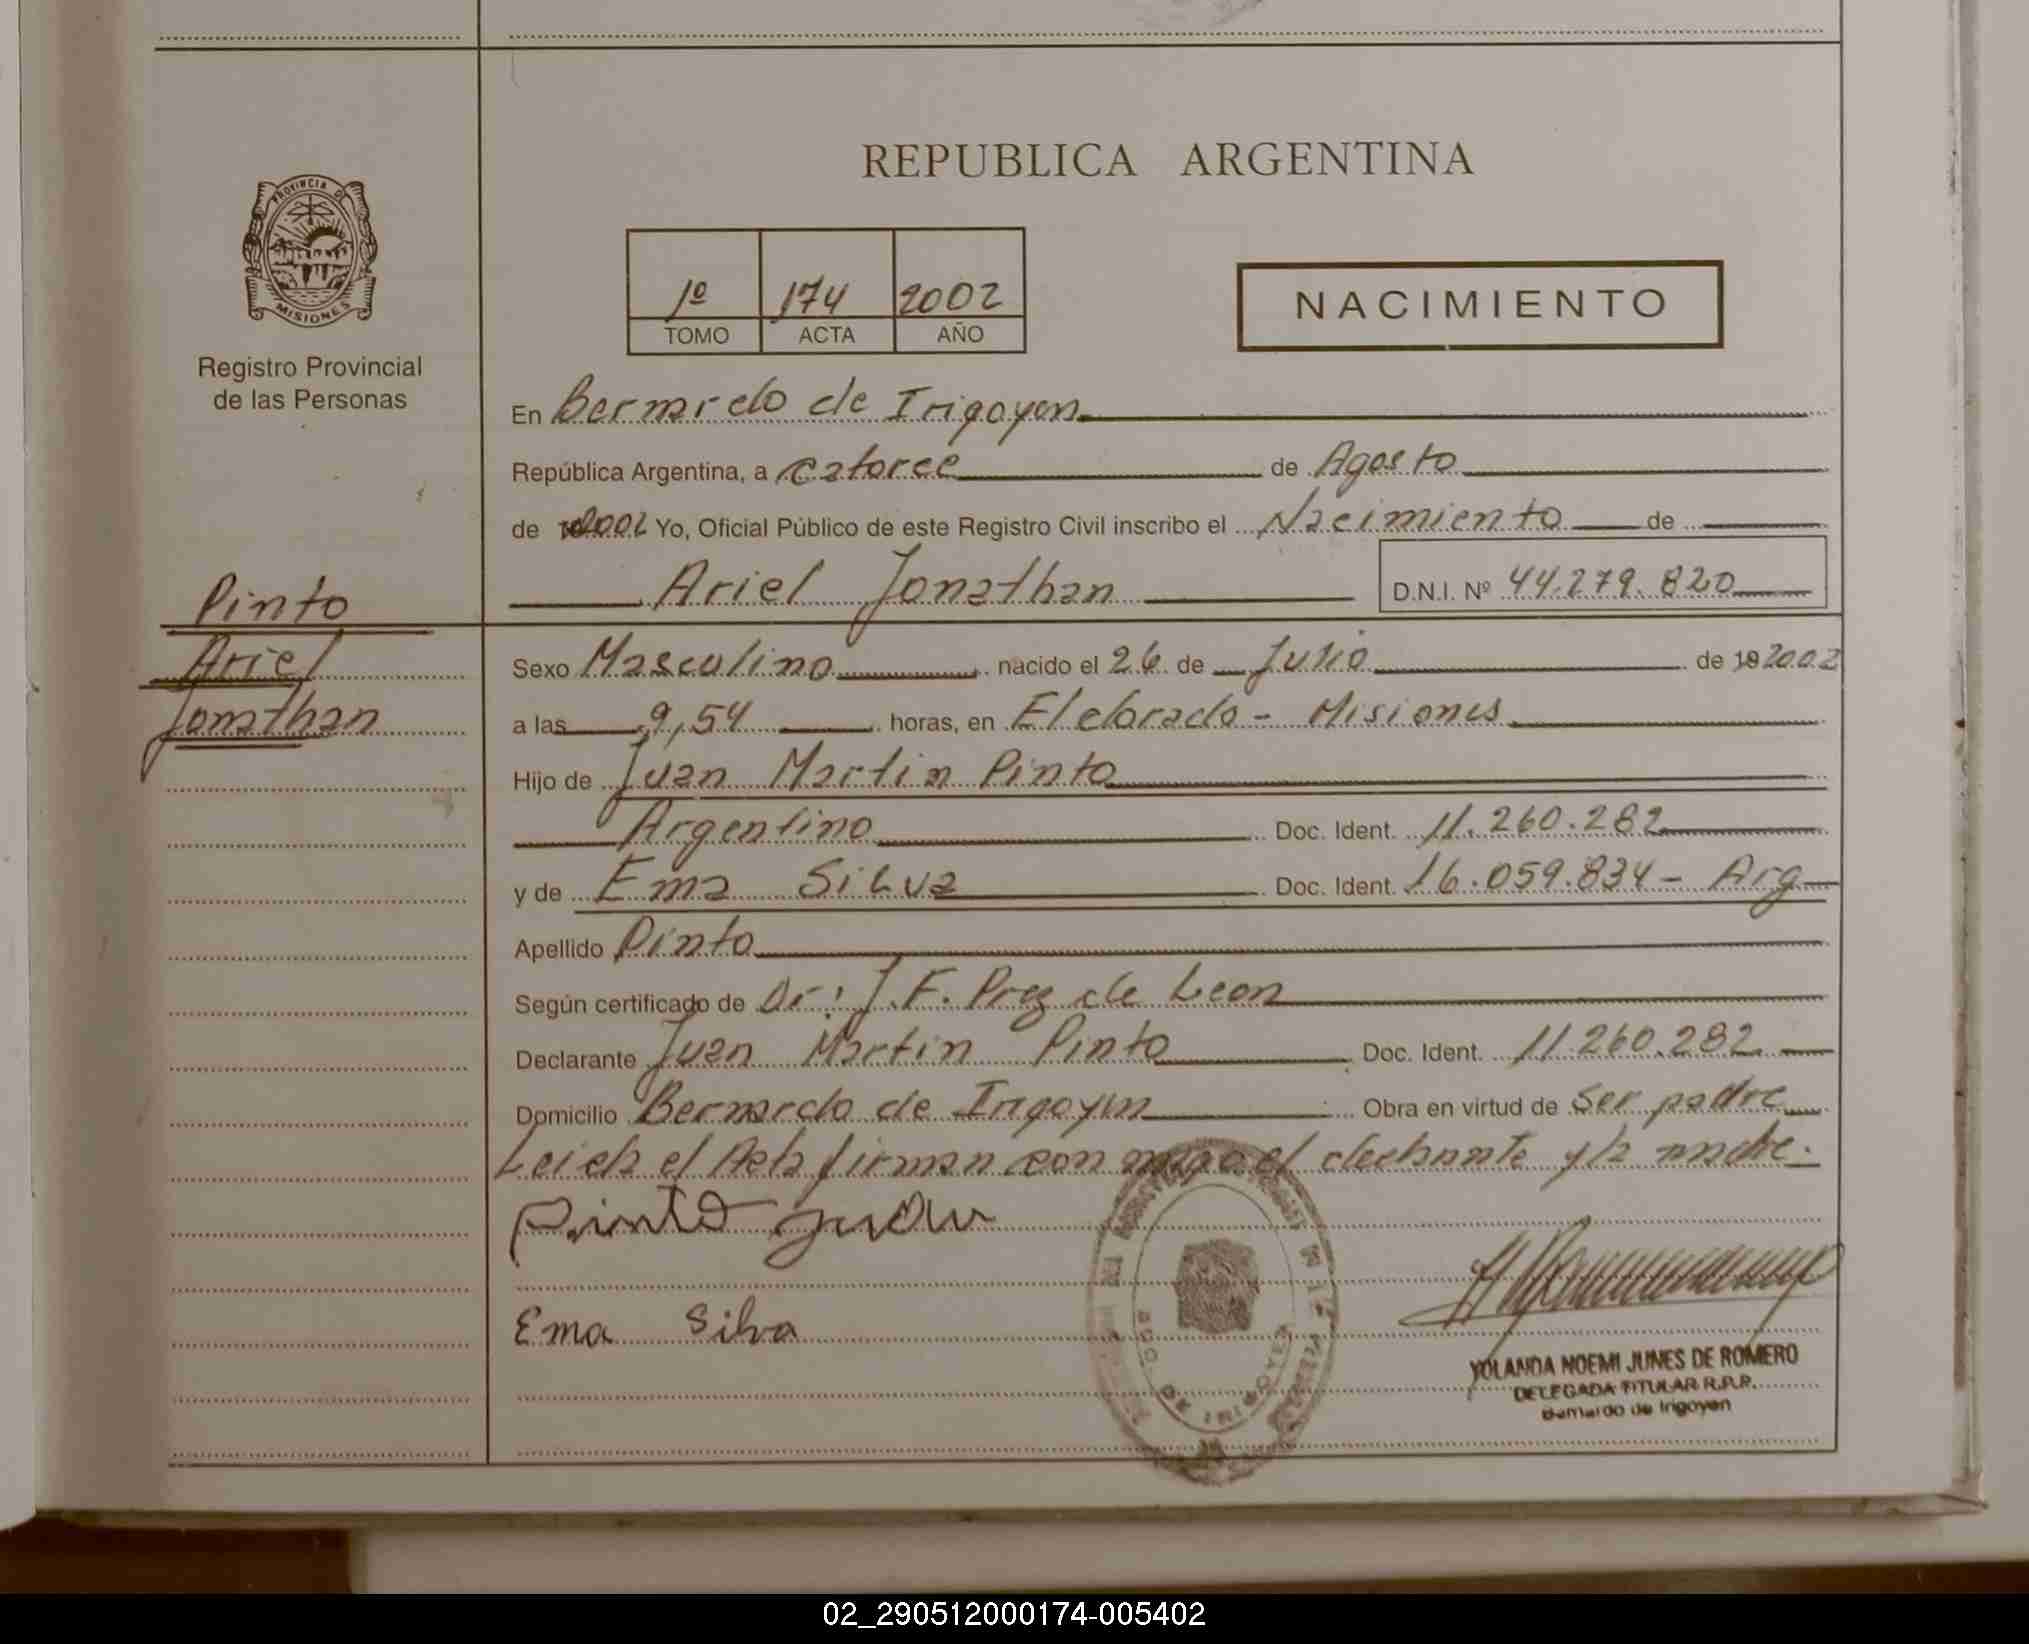 PROVINCIA DE
MISIONES
Registro Provincial
de las Personas
Pinto
Ariel
Jonathan
REPUBLICA ARGENTINA
1º 174 2002
TOMO ACTA AÑO
NACIMIENTO
En Bernardo de Irigoyen
República Argentina, a catorce de Agosto
de 2002 Yo, Oficial Público de este Registro Civil inscribo el Nacimiento de
Ariel Jonathan D.N.I. Nº 44.279.820
Sexo Masculino nacido el 26 de Julio de 19 2002
a las 9,54 horas, en Eldorado - Misiones
Hijo de Juan Martin Pinto
Argentino Doc. Ident. 11.260.282
y de Ema Silva Doc. Ident. 16.059.834 - Arg
Apellido Pinto
Según certificado de Dr: J.F. Prez de Leon
Declarante Juan Martin Pinto Doc. Ident. 11.260.282
Domicilio Bernardo de Irigoyen Obra en virtud de ser padre
Leida el Acta firman con migo el declarante y la madre.
Pinto Juan
Ema Silva
YOLANDA NOEMI JUNES DE ROMERO
DELEGADA TITULAR R.P.P.
Bernardo de Irigoyen
02_290512000174-005402